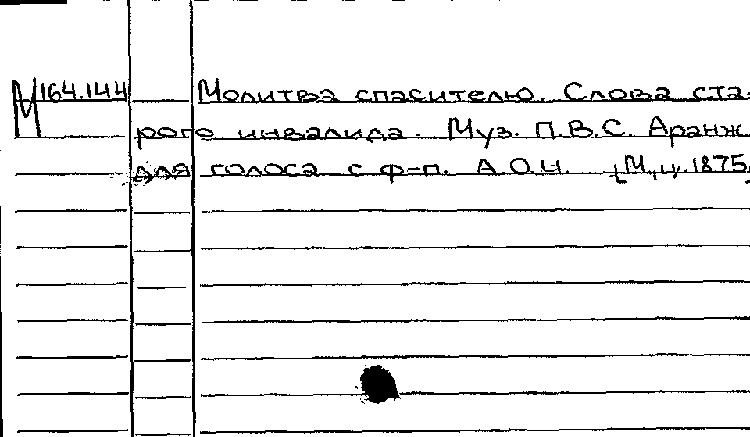 М 164.144 Молитва спасителю. Слова ста-
рого инвалида. Муз. П.В.С. Аранж.
для голоса с ф-п. А.О.Ч. [М., ц. 1875,